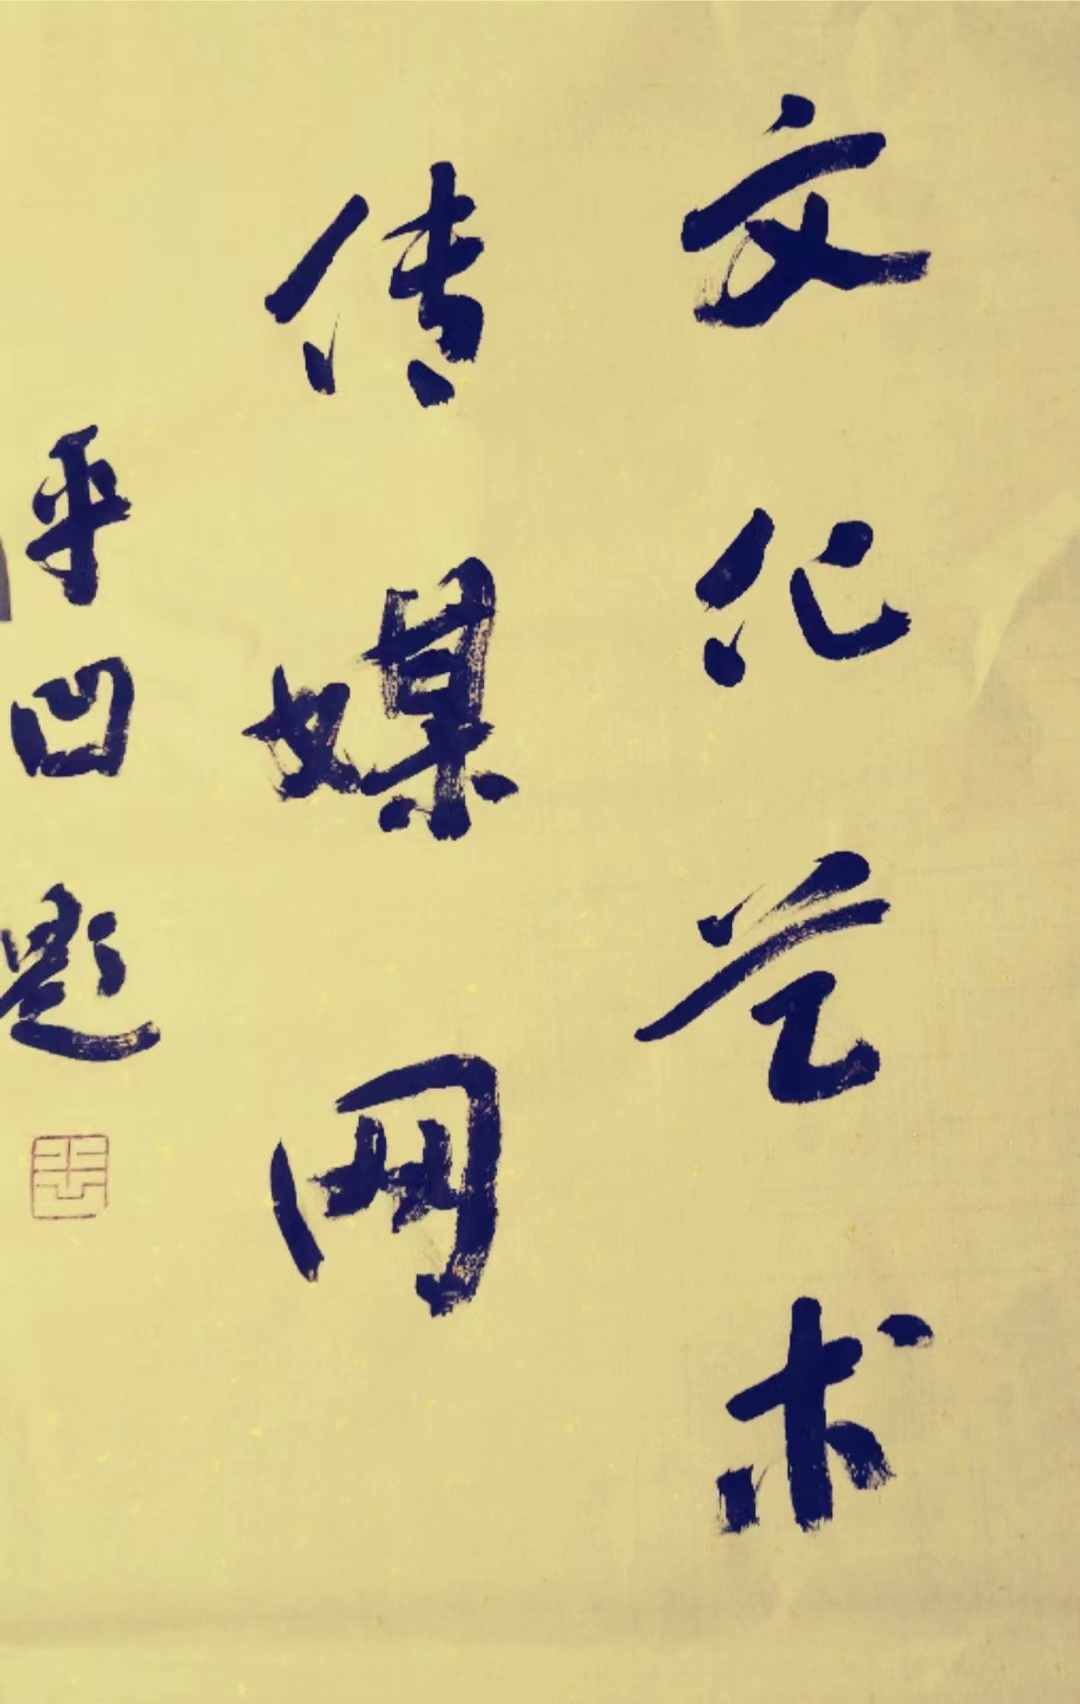 文化艺术
传媒网
平凹题